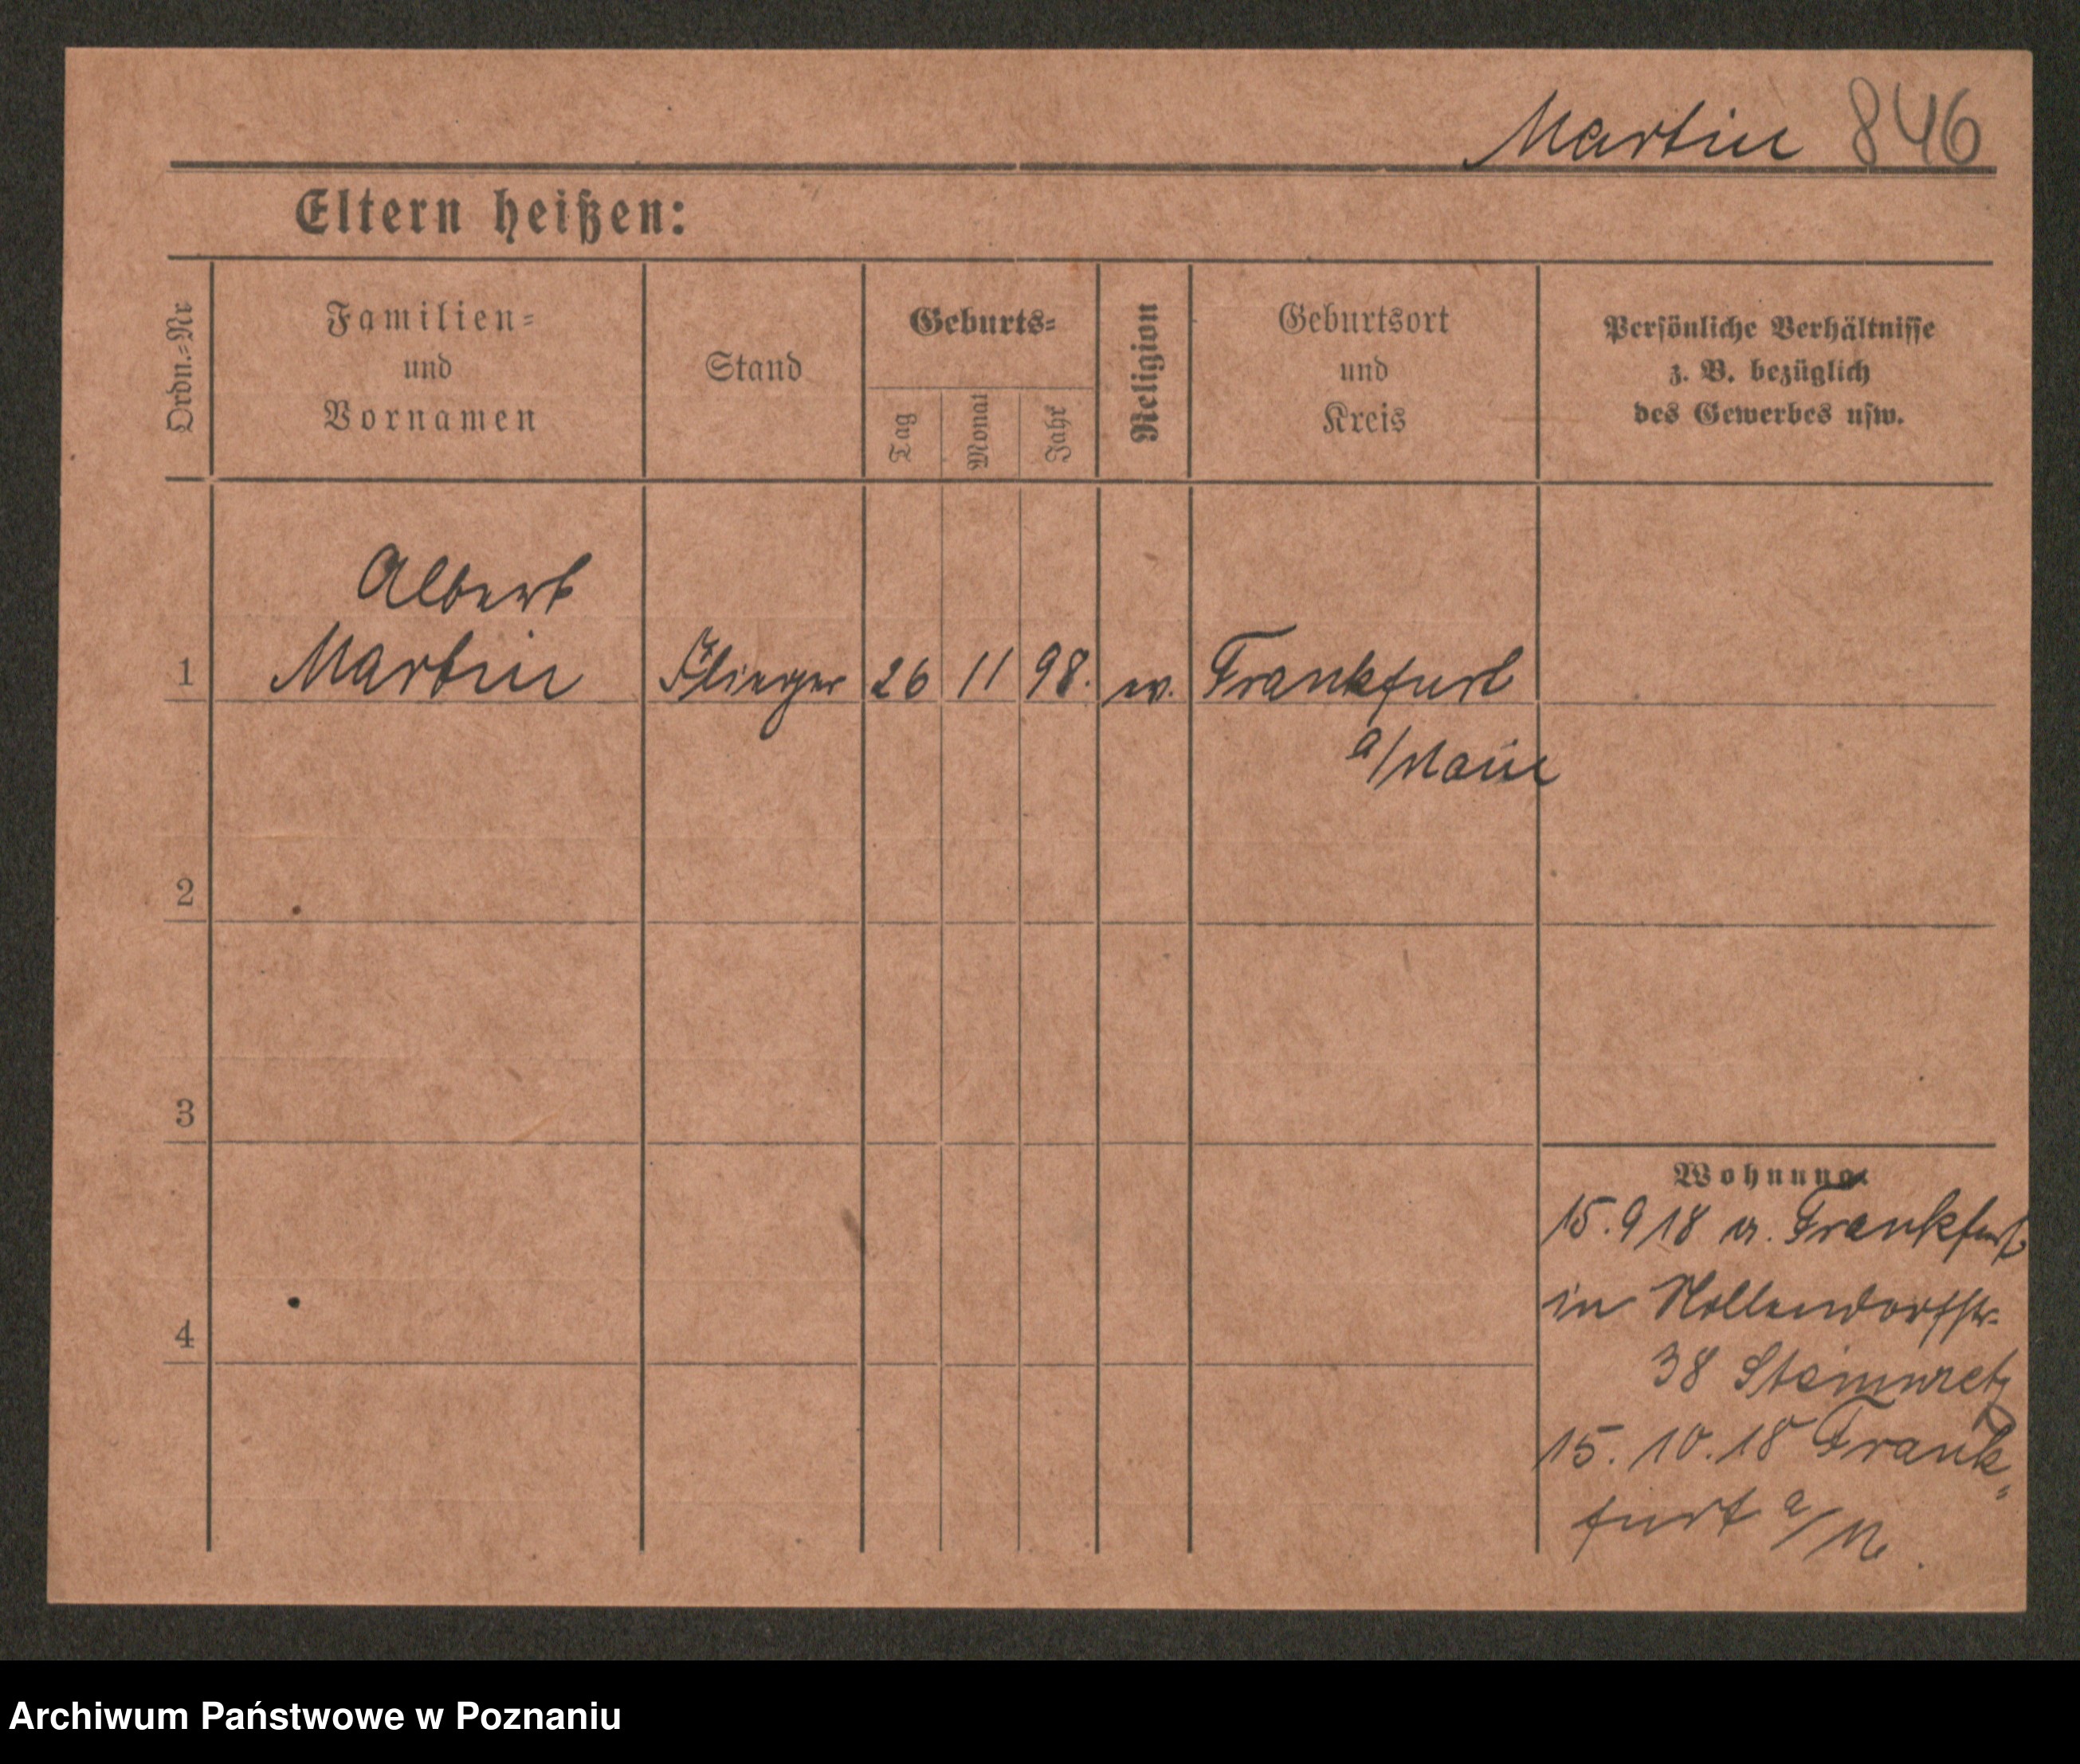 Martin 846
Eltern heißen:
Ordn.-Nr
Familien-
und
Vornamen
Stand
Geburts-
Tag
Monat
Jahr
Religion
Geburtsort
und
Kreis
Persönliche Verhältnisse
z. B. bezüglich
des Gewerbes usw.
Albert
1 Martin Flieger 26 11 98. ev. Frankfurt
a/Main
2
3
4
Wohnung
15.9 18 v. Frankfurt
in Hollendorfstr.
38
15.10.18 Frank-
furt a/M.
Archiwum Państwowe w Poznaniu